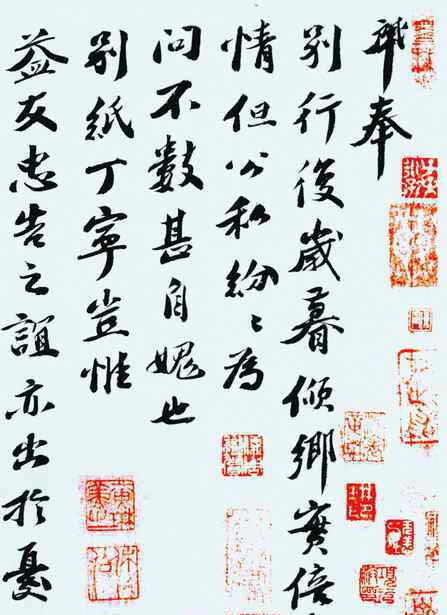 奉
别行後歲暮傾鄉實倍
情但公私紛〻為
問不數甚自媿也
别紙丁寧豈惟
益友忠告之誼亦出於憂